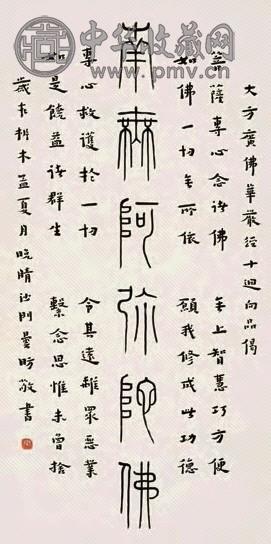 中华收藏网
www.pmv.cn
大方廣佛華嚴經十迴向品偈
菩薩專心念諸佛 無上智慧巧方便
如佛一切無所依 願我修成此功德
南無阿彌陀佛
專心救護於一切 令其遠離眾惡業
如是饒益諸群生 繫念思惟未曾捨
歲在析木孟夏月晚晴沙門曇昉敬書